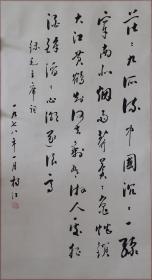 茫：九派流中国沉：一线
穿南北烟雨莽苍：龟蛇锁
大江黄鹤知何去剩有游人处把
酒酹滔：心潮逐浪高
毛主席词
一九七八年一月